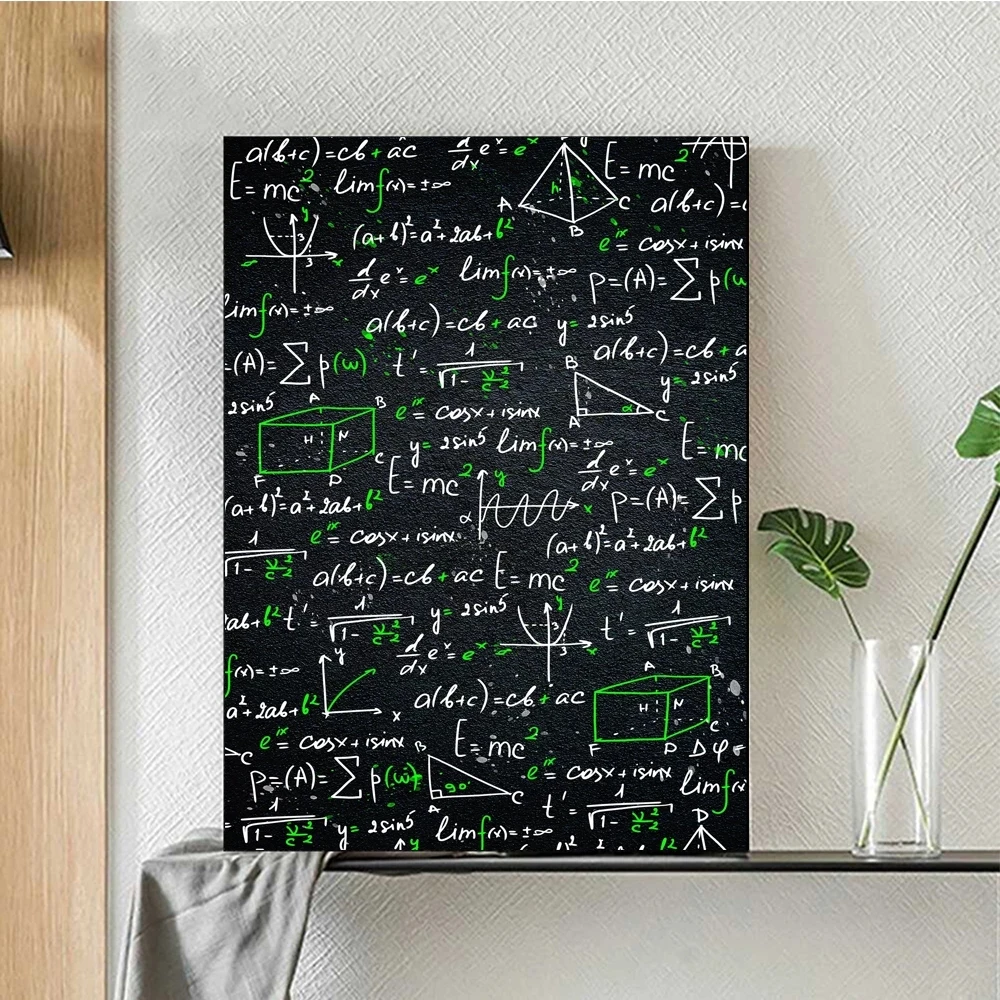 a(b+c)=cb+ac d/dx e^x=e^x
E=mc^2 lim f(x)=±∞ E=mc^2
y A h C a(b+c)=
3 3 x (a+b)^2=a^2+2ab+b^2 B e^ix=cosx+isinx
d/dx e^x=e^x lim f(x)=±∞ p=(A)=∑p(w
lim f(x)=±∞ a(b+c)=cb+ac y=2sin5
=(A)=∑p(w) t'=1/√1-v^2/c^2 B a(b+c)=cb+a
2sin5 A B e^ix=cosx+isinx A α C y=2sin5
H N C y=2sin5 lim f(x)=±∞ E=mc
F D E=mc^2 y d/dx e^x=e^x
(a+b)^2=a^2+2ab+b^2 α x p=(A)=∑p
e^ix=cosx+isinx (a+b)^2=a^2+2ab+b^2
1/√1-v^2/c^2 a(b+c)=cb+ac E=mc^2 e^ix=cosx+isinx
2ab+b^2 t'=1/√1-v^2/c^2 y=2sin5 y 3 3 x t'=1/√1-v^2/c^2
f(x)=±∞ y d/dx e^x=e^x A B
a^2+2ab+b^2 x a(b+c)=cb+ac H N C
C e^ix=cosx+isinx B E=mc^2 F D Δφ=
p=(A)=∑p(w) 90° A C e^ix=cosx+isinx lim f(x
=1/√1-v^2/c^2 y=2sin5 lim f(x)=±∞ t'=1/√1-v^2/c^2 D
y